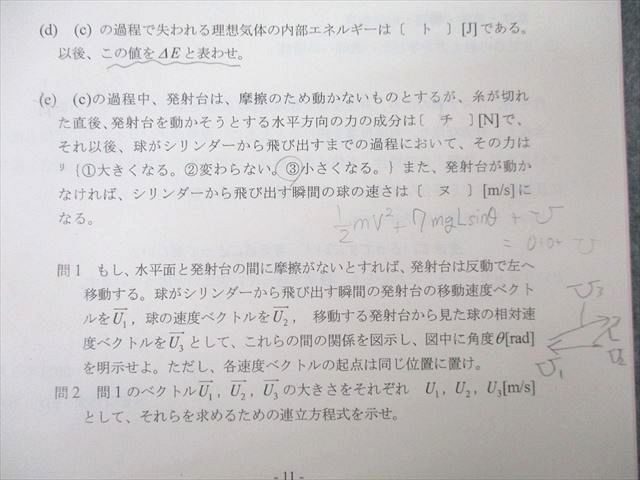 (d) (c) の過程で失われる理想気体の内部エネルギーは〔 ト 〕[J]である。
以後、この値をΔEと表わせ。
(e) (c)の過程中、発射台は、摩擦のため動かないものとするが、糸が切れ
た直後、発射台を動かそうとする水平方向の力の成分は〔 チ 〕[N]で、
それ以後、球がシリンダーから飛び出すまでの過程において、その力は
リ {①大きくなる。②変わらない。③小さくなる。} また、発射台が動か
なければ、シリンダーから飛び出す瞬間の球の速さは〔 ヌ 〕[m/s]に
なる。
1/2 mV² + 7mgLsinθ + U
= 0+0+ U
問1 もし、水平面と発射台の間に摩擦がないとすれば、発射台は反動で左へ
移動する。球がシリンダーから飛び出す瞬間の発射台の移動速度ベクト
ルをU₁, 球の速度ベクトルをU₂, 移動する発射台から見た球の相対速
度ベクトルをU₃として、これらの間の関係を図示し、図中に角度θ[rad]
を明示せよ。ただし、各速度ベクトルの起点は同じ位置に置け。
U₃
U₁
U₂
問2 問1のベクトルU₁, U₂, U₃の大きさをそれぞれ U₁, U₂, U₃[m/s]
として、それらを求めるための連立方程式を示せ。
- 11 -